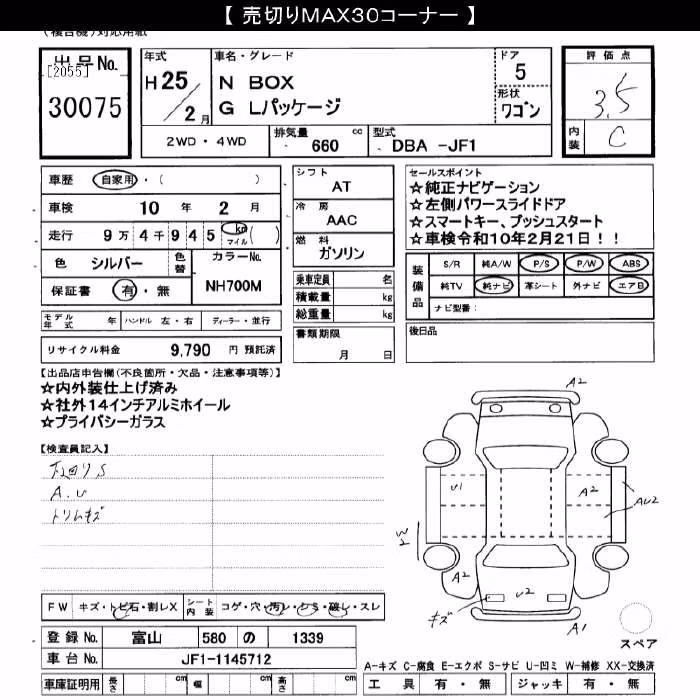 【 売切りMAX30コーナー 】
(複合機)対応用紙
出品No.
[2055]
30075
年式
H25/2月
車名・グレード
N BOX
G Lパッケージ
ドア
5
形状
ワゴン
評価点
3.5
内装
C
2WD・4WD
排気量
660 cc
型式
DBA -JF1
車歴 自家用・( )
車検 10 年 2 月
走行 9万4千945 km マイル ( )
色 シルバー 色替
カラーNo.
NH700M
保証書 有・無
モデル年式 年 ハンドル 左・右 ディーラー・並行
リサイクル料金 9,790 円 預託済
シフト
AT
冷房
AAC
燃料
ガソリン
乗車定員 名
積載量 kg
総重量 kg
書類期限
月 日
セールスポイント
☆純正ナビゲーション
☆左側パワースライドドア
☆スマートキー、プッシュスタート
☆車検令和10年2月21日！！
装備品
S/R 純A/W P/S P/W ABS
純TV 純ナビ 革シート 外ナビ エアB
ナビ型番：
後日品
【出品店申告欄(不良箇所・欠品・注意事項等)】
☆内外装仕上げ済み
☆社外14インチアルミホイール
☆プライバシーガラス
【検査員記入】
下回りS
A.U
トリムキズ
A2
U1
A2
AU2
W2
A2
U2
キズ
A1
スペア
FW キズ・トビ石・割レX
シート内装 コゲ・穴・汚レ・シミ・破レ・スレ
登録No. 富山 580 の 1339
車台No. JF1-1145712
車庫証明用 長さ cm 幅 cm 高さ cm
A-キズ C-腐食 E-エクボ S-サビ U-凹ミ W-補修 XX-交換済
工具 有・無 ジャッキ 有・無